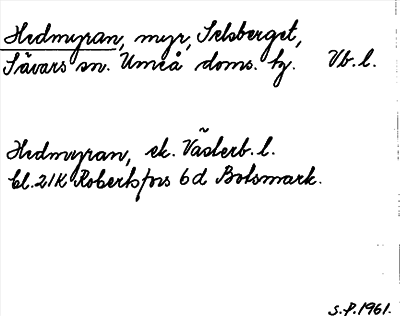 Hedmyran, myr, Selsberget,
Sävars sn. Umeå doms. hg. Vb. l.
Hedmyran, ek. Västerb. l.
bl. 21K Robertsfors 6d Botsmark.
S.P. 1961.